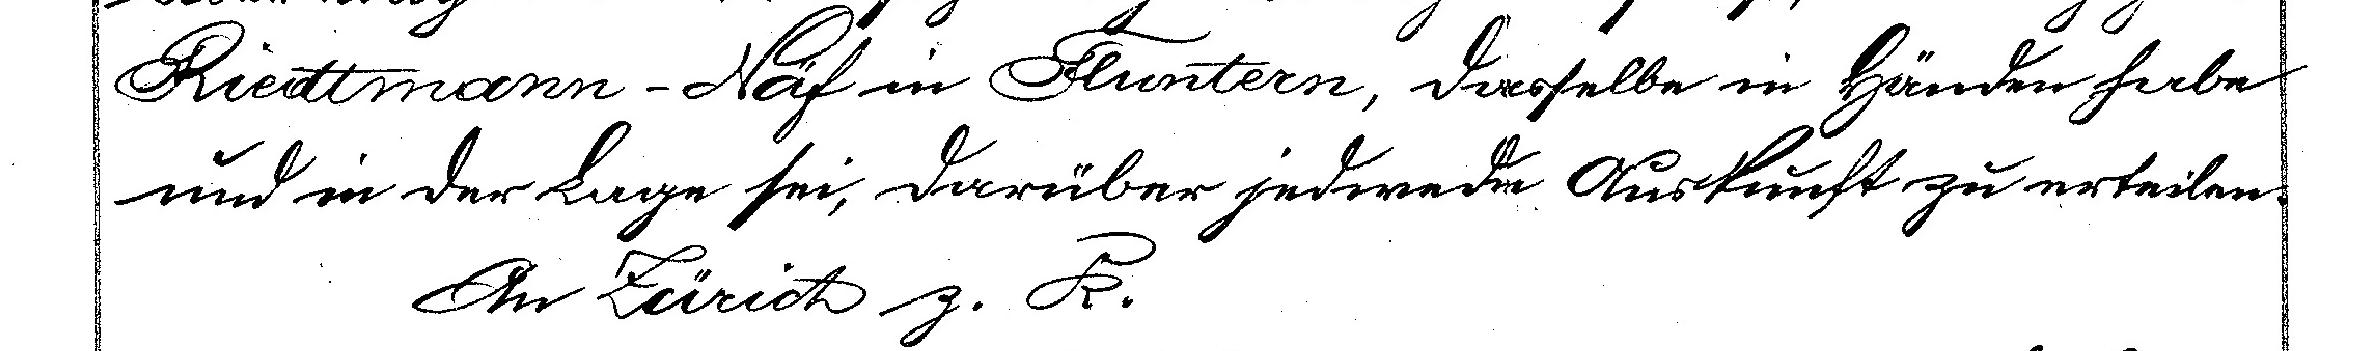 Riedtmann-Näf in Fluntern, dasselbe in Händen habe
und in der Lage sei, darüber jedwede Auskunft zu erteilen.
An Zürich z. K.